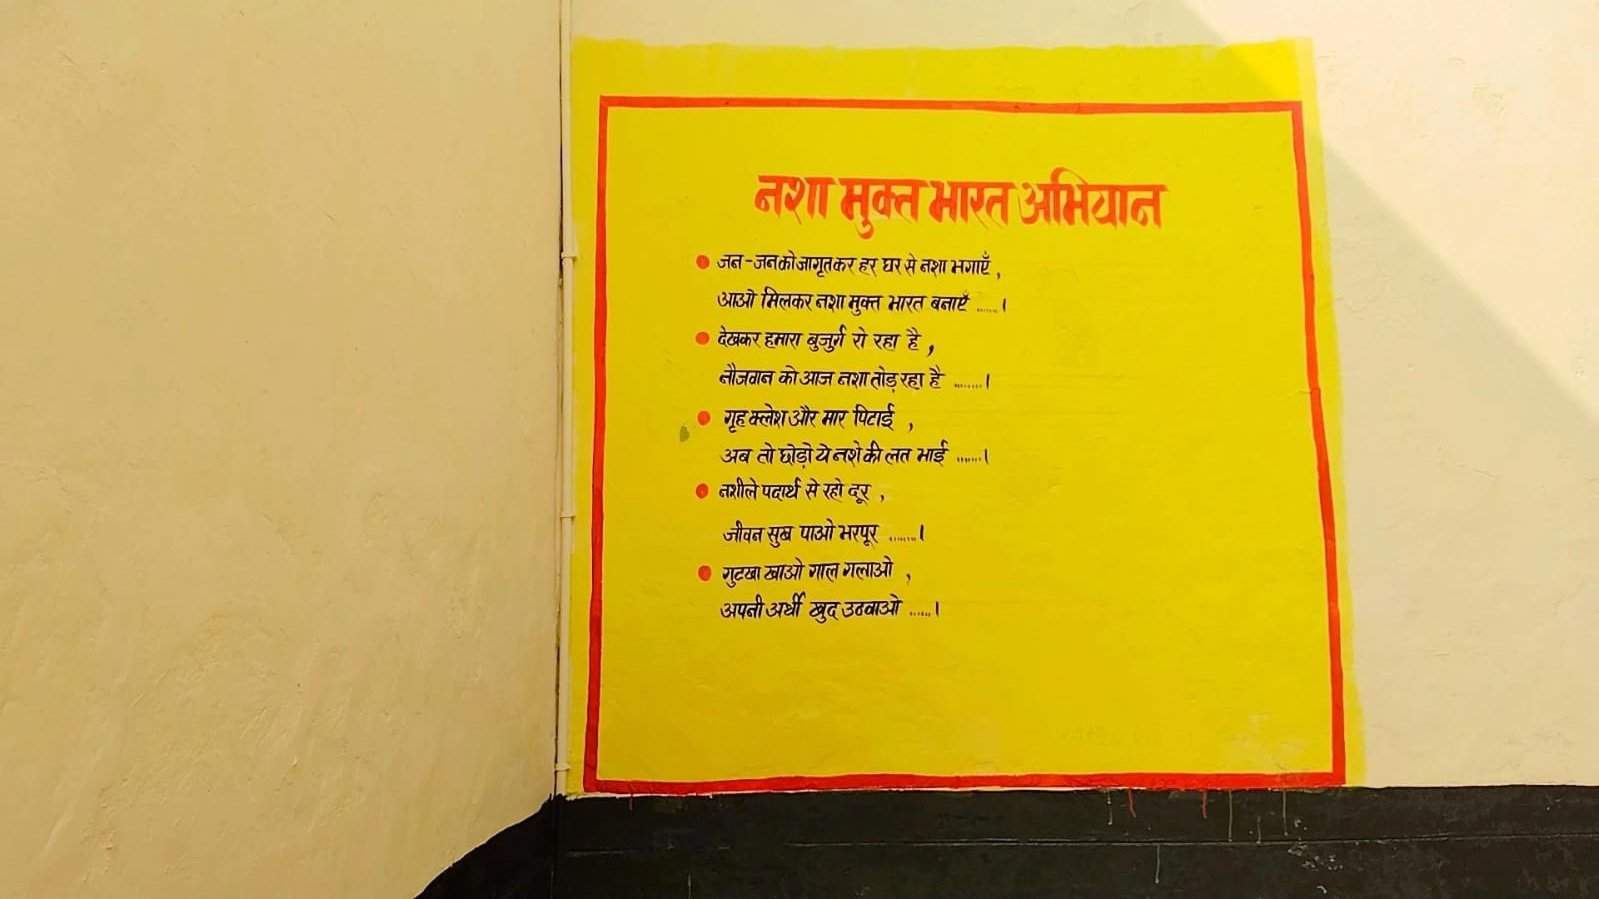 नशा मुक्त भारत अभियान
• जन-जन को जागृत कर हर घर से नशा भगाएँ,
आओ मिलकर नशा मुक्त भारत बनाएँ ......।
• देखकर हमारा बुजुर्ग रो रहा है,
नौजवान को आज नशा तोड़ रहा है ........।
• गृह क्लेश और मार पिटाई,
अब तो छोड़ो ये नशे की लत भाई .......।
• नशीले पदार्थ से रहो दूर,
जीवन सुख पाओ भरपूर ........।
• गुटखा खाओ गाल गलाओ,
अपनी अर्थी खुद उठवाओ ......।